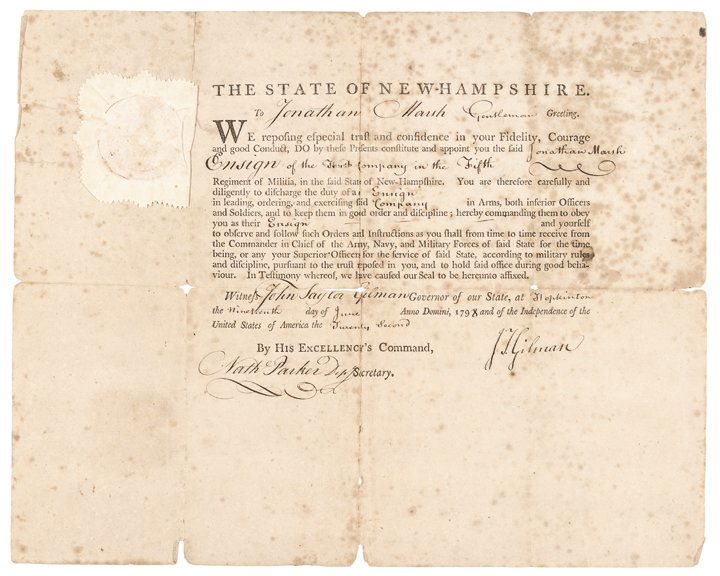 THE STATE OF NEW-HAMPSHIRE.
To Jonathan Marsh Gentleman Greeting.
WE reposing especial trust and confidence in your Fidelity, Courage
and good Conduct, DO by these Presents constitute and appoint you the said Jonathan Marsh
Ensign of the First Company in the Fifth
Regiment of Militia, in the said State of New-Hampshire. You are therefore carefully and
diligently to discharge the duty of an Ensign
in leading, ordering, and exercising said Company in Arms, both inferior Officers
and Soldiers, and to keep them in good order and discipline; hereby commanding them to obey
you as their Ensign and yourself
to observe and follow such Orders and Instructions as you shall from time to time receive from
the Commander in Chief of the Army, Navy, and Military Forces of said State for the time
being, or any your Superior Officers for the service of said State, according to military rules
and discipline, pursuant to the trust reposed in you, and to hold said office during good beha-
viour. In Testimony whereof, we have caused our Seal to be hereunto affixed.
Witness John Taylor Gilman Governor of our State, at Hopkinton
the Nineteenth day of June Anno Domini, 1798 and of the Independence of the
United States of America the Twenty Second
By HIS EXCELLENCY's Command, J T Gilman
Nath Parker Depy Secretary.